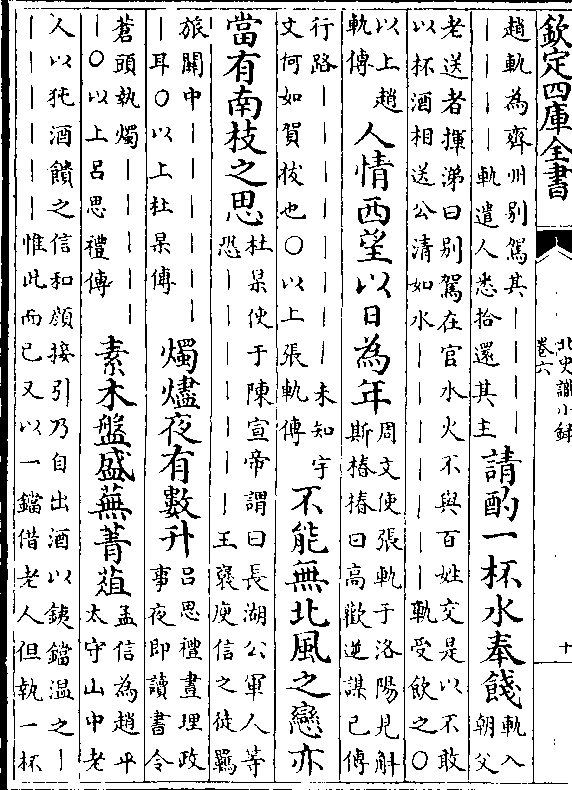 欽定四庫全書
北史識小録
卷六
十
趙軌為齊州别駕其｜｜｜｜
｜｜｜｜軌遣人悉拾還其主
請酌一杯水奉餞
軌入
朝父
老送者揮涕曰别駕在官水火不與百姓交是以不敢
以杯酒相送公清如水｜｜｜｜｜｜｜軌受飲之〇
以上趙
軌傳
人情西望以日為年
周文使張軌于洛陽見斛
斯椿椿曰高歡逆謀已傳
行路｜｜｜｜｜｜｜｜未知宇
文何如賀拔也〇以上張軌傳
不能無北風之戀亦
當有南枝之思
杜杲使于陳宣帝謂曰長湖公軍人等
恐｜｜｜｜｜｜｜｜｜｜王襃庾信之徒羈
旅關中｜｜｜｜｜｜
｜耳〇以上杜杲傳
燭燼夜有數升
吕思禮晝理政
事夜即讀書令
蒼頭執燭｜｜｜｜｜
｜〇以上吕思禮傳
素木盤盛蕪菁葅
孟信為趙平
太守山中老
人以㹠酒饋之信和顔接引乃自出酒以鐵鐺温之｜
｜｜｜｜｜｜惟此而已又以一鐺借老人但執一杯